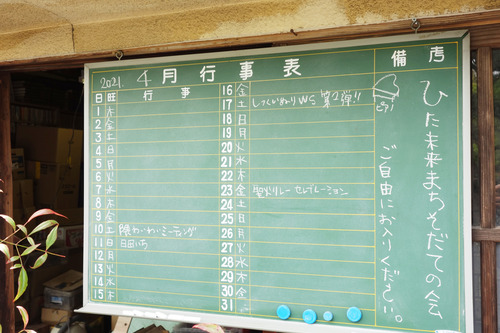 2021. 4月行事表
備考
日 曜 行事
1 木
2 金
3 土
4 日
5 月
6 火
7 水
8 木
9 金
10 土 隈わいわいミーティング
11 日 日曰いち
12 月
13 火
14 水
15 木
16 金
17 土 しっくいぬりWS 第2弾!!
18 日
19 月
20 火
21 水
22 木
23 金 聖火リレー セレブレーション
24 土
25 日
26 月
27 火
28 水
29 木
30 金
31
ピアノ
ひた未来まちそだての会
ご自由にお入りください。